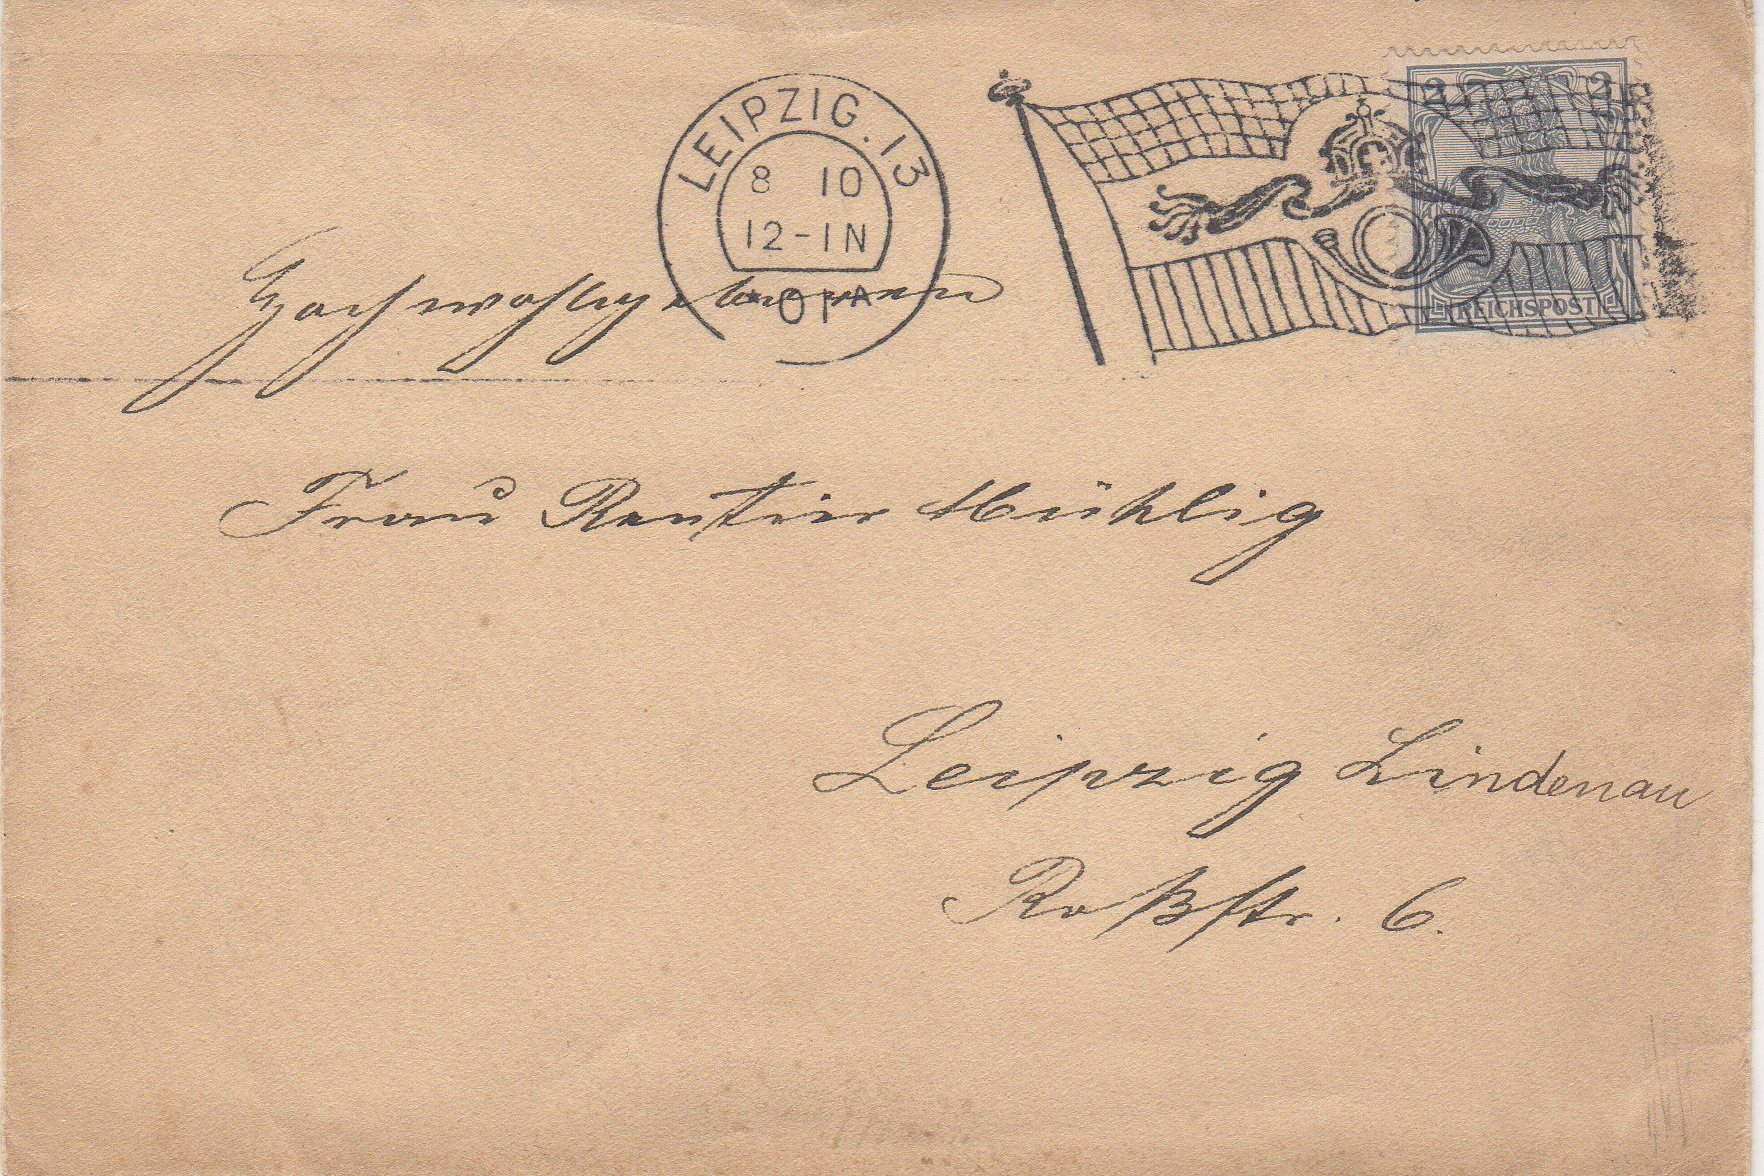 LEIPZIG.13
8 10
12-1N
01
2 2
REICHSPOST
Hochwohlgeboren
Frau Rentier Mühlig
Leipzig Lindenau
Roßstr. 6.